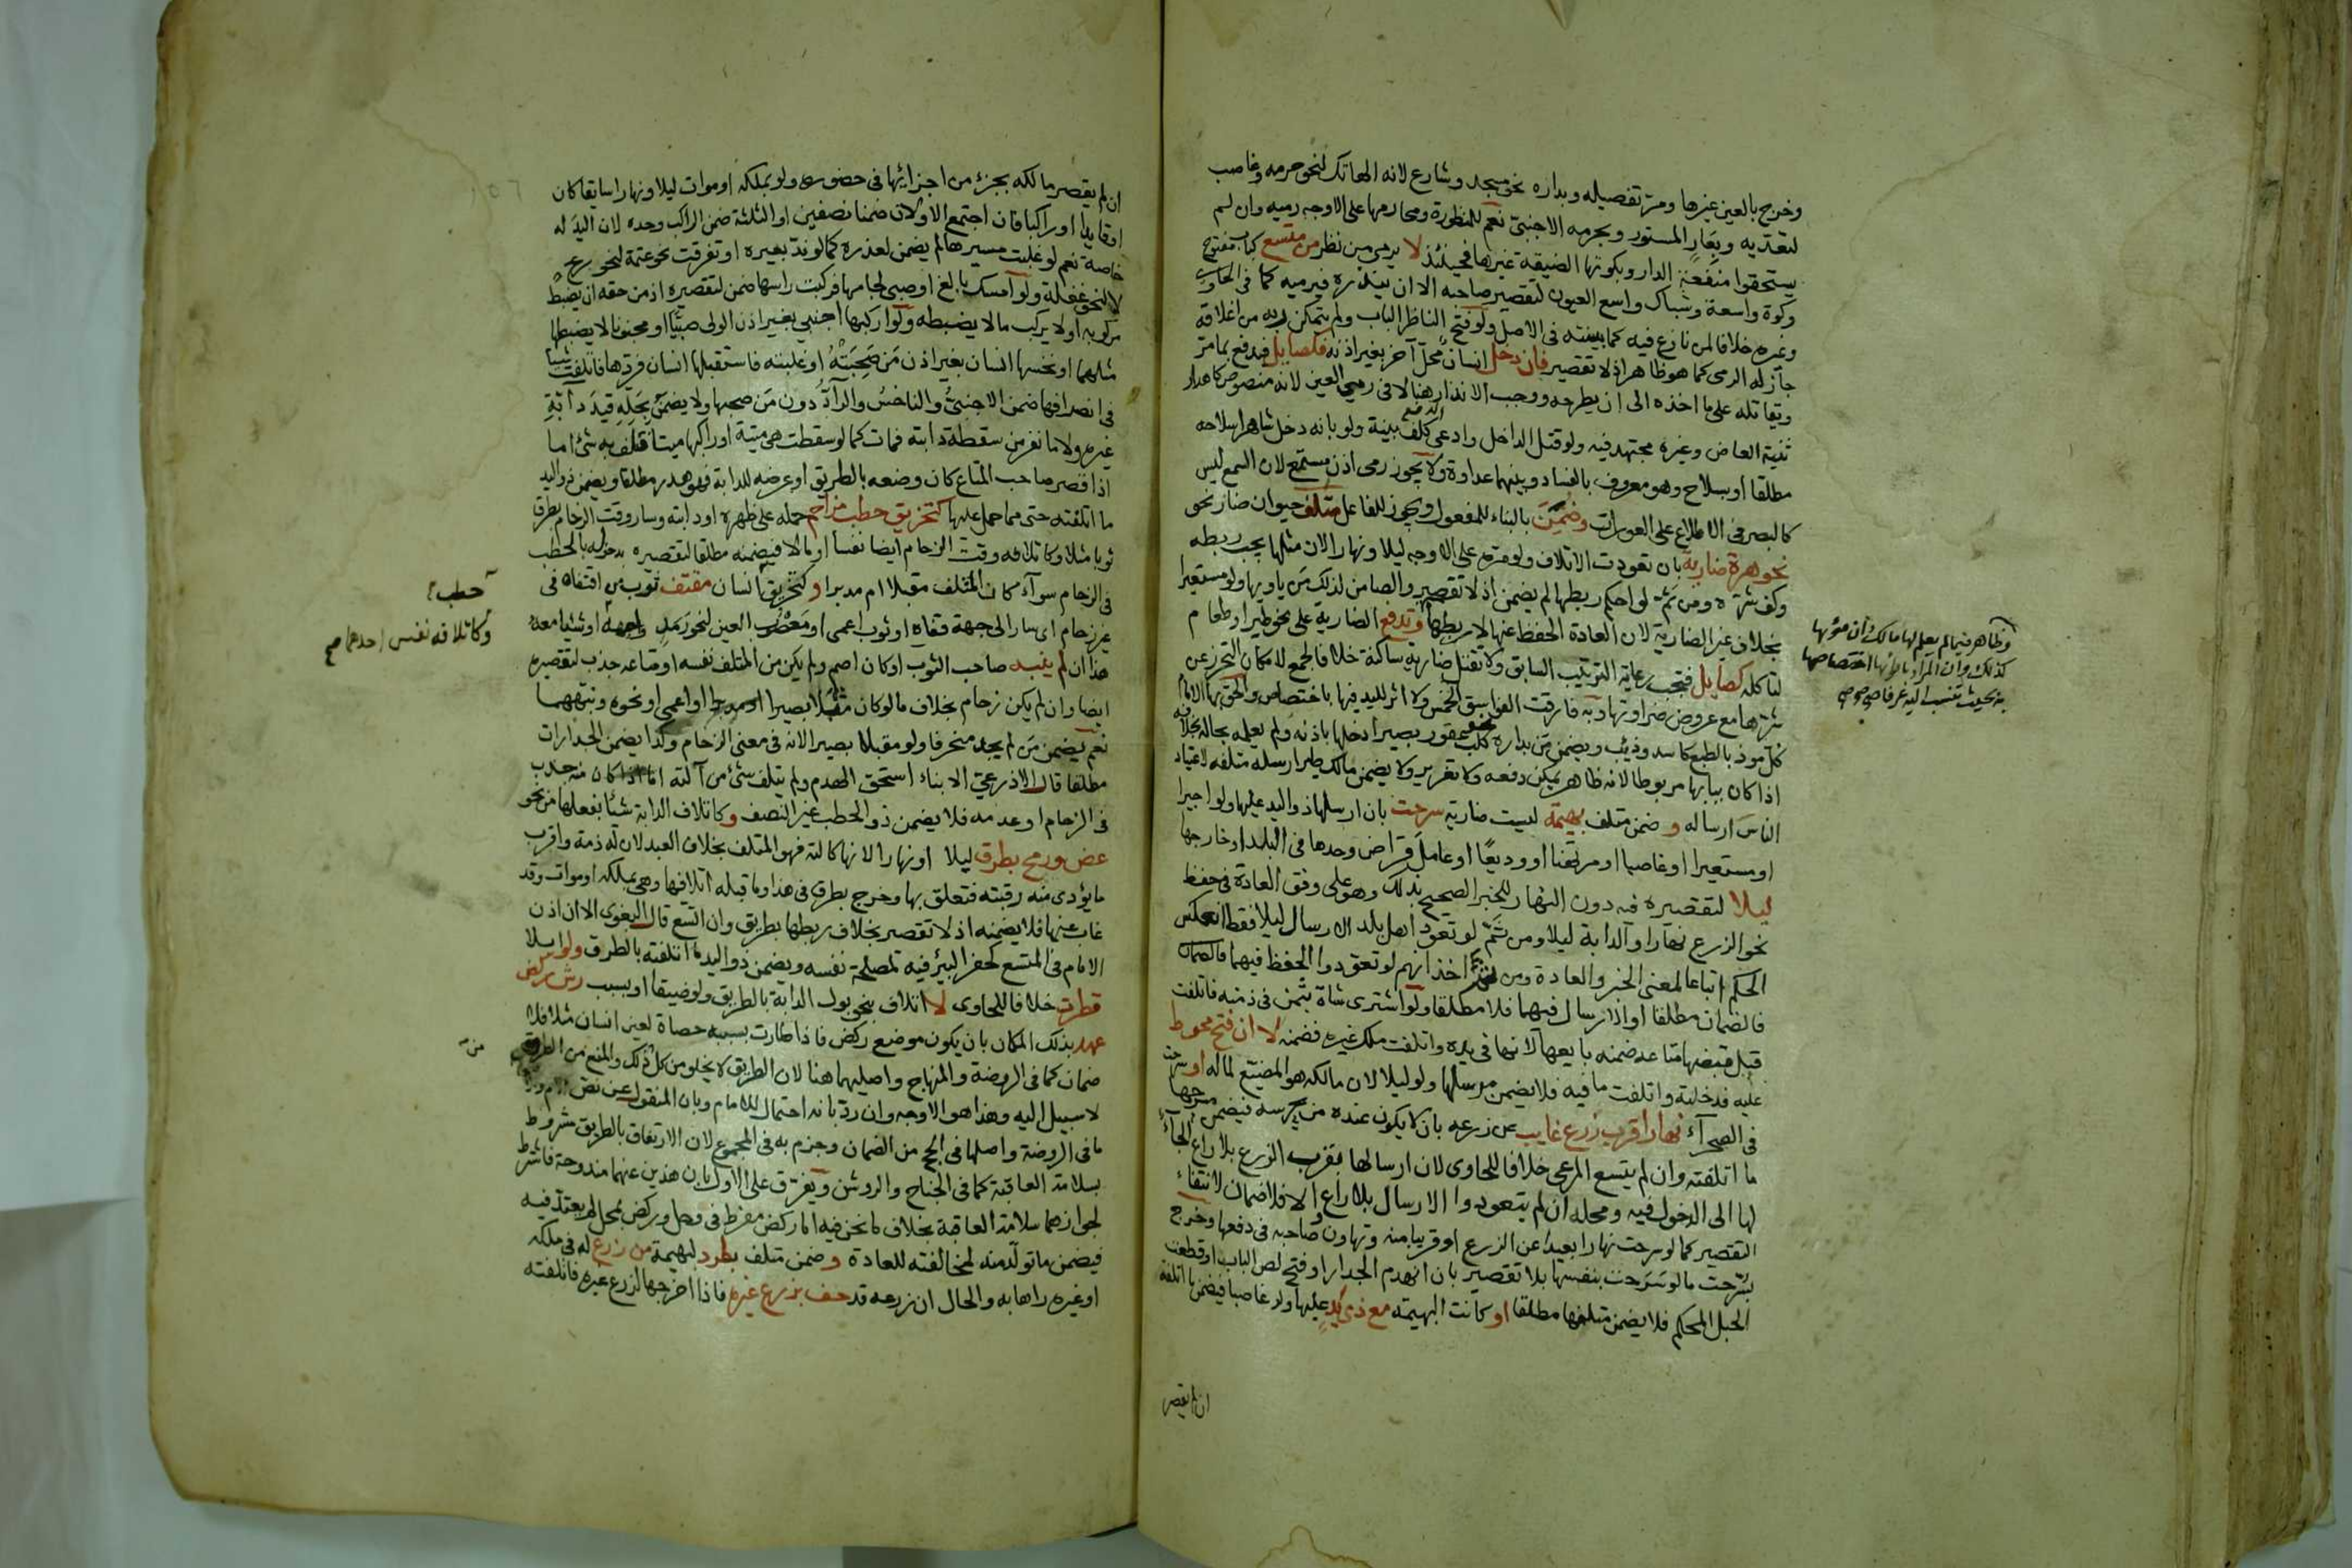 وخرج بالعين غيرها ومر تفصيله وبداره نحو مسجد وشارع لانه الهاتك لنحو حرمه وغاصب
لتعديه وبعار المستور وبحرمه الاجنبي نعم للمنظورة ومحارمها على الاوجه رميه وان لم
يستحقوا منفعة الدار وبكوتها الضيقة غيرها فحينئذ لا يرمي من نظر من متسع كباب مفتوح
وكوة واسعة وشباك واسع العيون لتقصير صاحبه الا ان ينذره فيرميه كما في الحاوي
وغيره خلافا لمن نازع فيه كما بينته في الاصل ولو فتح الناظر الباب ولم يتمكن ربه من اغلاقه
جاز له الرمي كما هو ظاهر اذ لا تقصير فان دخل انسان محل آخر بغير اذنه فكصايل فيدفع بما مر
ويقاتله على ما اخذه الى ان يطرحه ووجب الانذار هنا لا في رمي العين لانه منصوص كاهدار
ثنية العاض وغيره مجتهد فيه ولو قتل الداخل وادعى الدفع كلف بينة ولو بانه دخل شاهرا سلاحه
مطلقا او بسلاح وهو معروف بالفساد وبينهما عداوة ولا يجوز رمي اذن مستمع لان السمع ليس
كالبصر في الاطلاع على العورات وضمن بالبناء للمفعول ويجوز للفاعل متلف حيوان ضار نحو
نحو هرة ضارية بان تعودت الاتلاف ولو مرة على الاوجه ليلا ونهارا لان مثلها يجب ربطه
وكف شره ومن ثم لو احكم ربطها لم يضمن اذ لا تقصير والضامن لذلك من ياويها ولو مستعيرا
بخلاف غير الضارية لان العادة الحفظ عنها لا ربطها وتدفع الضارية على نحو طير او طعام
لتاكله كصايل فتجب رعاية الترتيب السابق ولا تقتل ضارية ساكنة خلافا لجمع لامكان التحرز عن
شرها مع عروض ضراوتها وبه فارقت الفواسق الخمس ولا اثر لليد فيها باختصاص والحق بها الامام
كل موذ بالطبع كاسد وذيب ويضمن من بداره كلب عقور بصيرا دخلها باذنه ولم يعلمه بحاله بخلافه
اذا كان ببابها مربوطا لانه ظاهر يمكن دفعه ولا تغرير ولا يضمن مالك طير ارسله متلفه لاعتياد
الناس ارساله و ضمن متلف بهيمة ليست ضارية سرحت بان ارسلها ذو اليد عليها ولو اجيرا
او مستعيرا او غاصبا او مرتهنا او وديعا او عامل قراض وحدها في البلد او خارجها
ليلا لتقصيره فيه دون النهار للخبر الصحيح بذلك وهو على وفق العادة في حفظ
نحو الزرع نهارا والدابة ليلا ومن ثم لو تعود اهل بلد الارسال ليلا فقط انعكس
الحكم اتباعا لمعنى الخبر والعادة ومن ثم اخذ انهم لو تعودوا الحفظ فيهما فالضمان
فالضمان مطلقا او الارسال فيهما فلا مطلقا ولو اشترى شاة بثمن في ذمته فاتلفت
قبل قبضها متاعه ضمنه بايعها لانها في يده واتلفت ملك غيره فضمنه لا ان فتح محوط
عليه فدخلته واتلفت ما فيه فلا يضمن مرسلها ولو ليلا لان مالكه هو المضيع لماله او سرحت
في الصحراء نهارا قرب زرع غايب عن زرعه بان لا يكون عنده من يحرسه فيضمن مسرحها
ما اتلفته وان لم يتسع المرعى خلافا للحاوي لان ارسالها بقرب الزرع بلا راع الجاء
لها الى الدخول فيه ومحله ان لم يتعودوا الارسال بلا راع والا فلا ضمان لانتفاء
التقصير كما لو سرحت نهارا بعيدا عن الزرع او قريبا منه وتهاون صاحبه في دفعها وخرج
بسرحت ما لو سرحت بنفسها بلا تقصير بان انهدم الجدار او فتح لص الباب او قطعت
الحبل المحكم فلا يضمن متلفها مطلقا او كانت البهيمة مع ذي يد عليها ولو غاصبا فيضمن ما اتلفته
ان لم يقصر
وظاهر فيما لم يعلم لها مالك وان مؤنها
كذلك وان المراد باوائها اختصاصها
به بحيث تنسب اليه عرفا صح صح
ان لم يقصر مالكه بجزء من اجزائها في حضوره ولو بملكه او موات ليلا ونهارا سايقا كان
او قايدا او راكبا فان اجتمع الاولان ضمنا نصفين او الثلثة ضمن الراكب وحده لان اليد له
خاصة نعم لو غلبت مسيرها لم يضمن لعذره كما لو ند بعيره او تفرقت نحو غنمه لنحو ريح
لا لنحو غفلة ولو امسك بالغ او صبي لجامها فركبت راسها ضمن لتقصيره اذ من حقه ان يضبط
مركوبه او لا يركب ما لا يضبطه ولو اركبها اجنبي بغير اذن الولي صبيا او مجنونا لا يضبطها
مثلهما او نخسها انسان بغير اذن من صحبته او غلبته فاستقبلها انسان فردها فاتلفت شيئا
في انصرافها ضمن الاجنبي والناخس والراد دون من صحبها ولا يضمن بحله قيد دابة
غيره ولا ما نفر من سقطة دابته فمات كما لو سقطت هي ميتة او راكبها ميتا فتلف به شيء اما
اذا قصر صاحب المتاع كان وضعه بالطريق او عرضه للدابة فهو هدر مطلقا ويضمن ذو اليد
ما اتلفته حتى مما حمل عليها كتخريق حطب مزاحم حمله على ظهره او دابته وسار وقت الزحام بطرق
ثوبا مثلا وكاتلافه وقت الزحام ايضا نفسا او مالا فيضمنه مطلقا لتقصيره بدخوله بالحطب
في الزحام سواء كان المتلف مقبلا ام مدبرا و كتخريق انسان مقتف ثوب من اقتفاه في
غير زحام اي سار الى جهة قفاه او ثوب اعمى او معصوب العين لنحو رمد واجهه او شيئا معه
هذا ان لم ينبه صاحب الثوب او كان اصم ولم يكن من المتلف نفسه او متاعه جذب لتقصيره
ايضا وان لم يكن زحام بخلاف ما لو كان مقبلا بصيرا او مدبرا او اعمى او نحوه ونبههما
نعم يضمن من لم يجد منحرفا ولو مقبلا بصيرا لانه في معنى الزحام وكذا يضمن الجدارات
مطلقا قال الاذرعي الا بناء استحق الهدم ولم يتلف شيء من آلته اما اذا كان منه جذب
في الزحام او عدمه فلا يضمن ذو الحطب غير النصف و كاتلاف الدابة شيئا بفعلها من نحو
عض ورمح بطرق ليلا او نهارا لانها كالته فهو المتلف بخلاف العبد لان له ذمة واقرب
ما يؤدى منه رقبته فتعلق بها وخرج بطرق في هذا وما قبله اتلافها وهي بملكه او موات وقد
غاب عنها فلا يضمنه اذ لا تقصير بخلاف ربطها بطريق وان اتسع قال البغوي الا ان اذن
الامام في المتسع كحفر البئر فيه لمصلحة نفسه ويضمن ذو اليد ما اتلفته بالطرق ولو ابلا
قطرت خلافا للحاوي لا اتلاف بنحو بول الدابة بالطريق ولو ضيقا او بسبب رش ركض
عهد بذلك المكان بان يكون موضع ركض فاذا طارت بسببه حصاة لعين انسان مثلا فلا
ضمان كما في الروضة والمنهاج واصليهما هنا لان الطريق لا يخلو من كل ذلك والمنع من الطروق
لا سبيل اليه وهذا هو الاوجه وان رد بانه احتمال للامام وبان المنقول عن نص الام
ما في الروضة واصلها في الحج من الضمان وجزم به في المجموع لان الارتفاق بالطريق مشروط
بسلامة العاقبة كما في الجناح والروشن ويفرق على الاول بان هذين عنهما مندوحة فاشترط
لجوازهما سلامة العاقبة بخلاف ما نحن فيه اما ركض مفرط في وحل وركض بمحل لم يعتد فيه
فيضمن ما تولد منه لمخالفته للعادة و ضمن متلف بطرد لبهيمة من زرع له في ملكه
او غيره راها به والحال ان زرعه قد حف بزرع غيره فاذا اخرجها لزرع غيره فاتلفته
حطب
وكاتلافه نفس احدهما صح